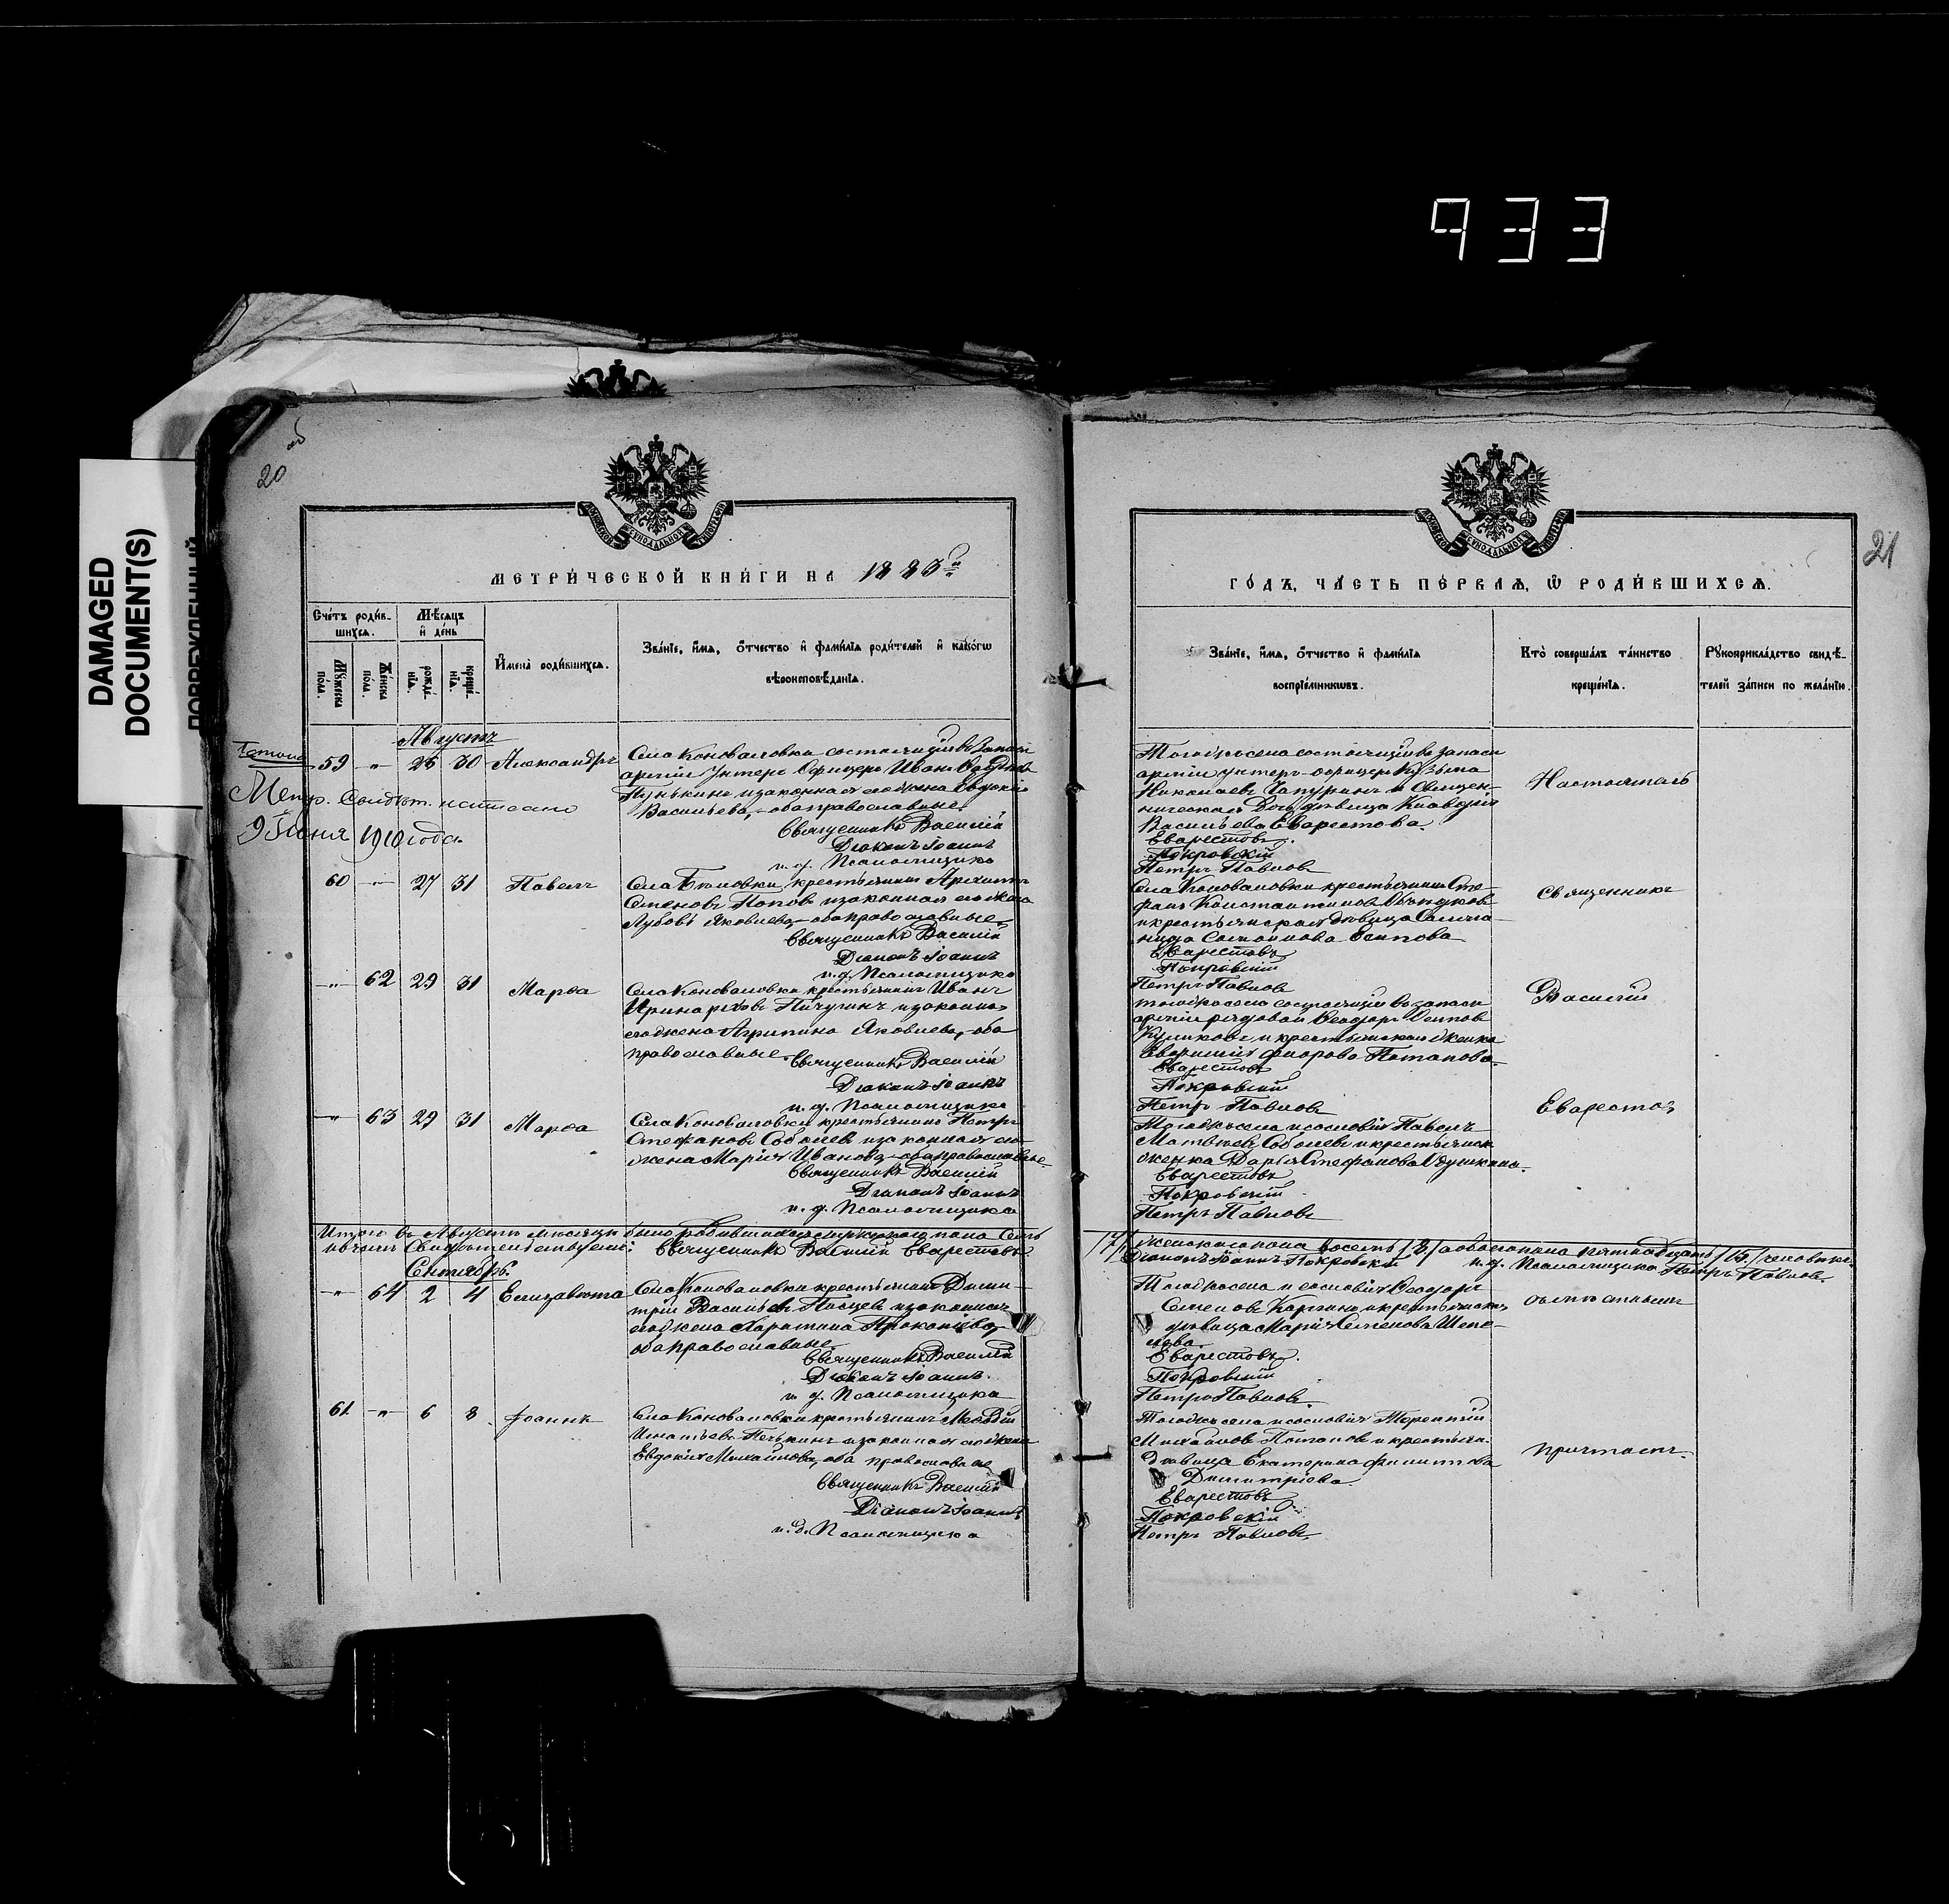 933
DAMAGED
DOCUMENT(S)
20
об
МЕТРИЧЕСКОЙ КНИГИ НА 1883
Счетъ родив-
шихся.
Мѣсяцъ
и день
Мужеска
пола.
Женска
пола.
рожде-
нія.
креще-
нія.
Имена родившихся.
Званіе, имя, отчество и фамилія родителей и какого
вѣроисповѣданія.
Августъ
59 " 26 30 Александръ Села Коноваловки состоящій въ запасѣ
арміи Унтеръ Офицеръ Иванъ
и законная его жена Евдокія
Васильева, оба православные.
Священникъ Василій
Діаконъ Іоаннъ
и. д. Псаломщика
Метр. Свидѣт.
9 Іюня 1910 года
60 " 27 31 Павелъ Села крестьянинъ
Семеновъ Поповъ и законная его жена
Любовь Яковлева, оба православные.
Священникъ Василій
Діаконъ Іоаннъ
и. д. Псаломщика
" 62 29 31 Марѳа Села Коноваловки крестьянинъ Иванъ
Пичугинъ и законная
его жена Агрипина Яковлева, оба
православные.
Священникъ Василій
Діаконъ Іоаннъ
и. д. Псаломщика
" 63 29 31 Марѳа Села Коноваловки крестьянинъ Петръ
Стефановъ Соболевъ и законная его
жена Марія Иванова, оба православные.
Священникъ Василій
Діаконъ Іоаннъ
и. д. Псаломщика
Итого въ Августѣ мѣсяцѣ было родившихся мужескаго пола Семь
въ чемъ Свидѣтельствуемъ: Священникъ Василій Еварестовъ
Сентябрь.
" 64 2 4 Елизавета Села Коноваловки крестьянинъ Дими-
трій Васильевъ и законная
его жена Харитина Прокопіева,
оба православные.
Священникъ Василій
Діаконъ Іоаннъ
и. д. Псаломщика
61 " 6 8 Іоаннъ Села Коноваловки крестьянинъ Меѳодій
Игнатьевъ и законная его жена
Евдокія Михайлова, оба православные
Священникъ Василій
Діаконъ Іоаннъ
и. д. Псаломщика
21
ГОДЪ, ЧАСТЬ ПЕРВАЯ, Ѡ РОДИВШИХСЯ.
Званіе, имя, отчество и фамилія
воспріемниковъ.
Кто совершалъ таинство
крещенія.
Рукоприкладство свидѣ-
телей записи по желанію.
Того же села состоящій въ запасѣ
арміи унтеръ-офицеръ Кузьма
Николаевъ Чапуринъ и Священ-
ническая дочь дѣвица Клавдія
Васильева Еварестова.
Еварестовъ.
Покровскій
Петръ Павловъ
Настоятель
Села Коноваловки крестьянинъ Сте-
фанъ Константиновъ
и крестьянская дѣвица
Осипова
Еварестовъ
Покровскій
Петръ Павловъ
Священникъ
Того же села состоящій въ запасѣ
арміи рядовой Ѳеодоръ Осиповъ
Куликовъ и крестьянская женка
Потапова.
Еварестовъ
Покровскій
Петръ Павловъ
Василій
Того же села и сословія Павелъ
Матвѣевъ Соболевъ и крестьянская
женка Дарья Стефанова
Еварестовъ
Покровскій
Петръ Павловъ
Еварестовъ
/7/ женскаго пола восемь /8/ а обоего пола пятнадцать /15/ человѣкъ.
Діаконъ Іоаннъ Покровскій и. д. Псаломщика Петръ Павловъ
Того же села и сословія Ѳеодоръ
Семеновъ и крестьянская
дѣвица Марія Семенова Шепе-
лева.
Еварестовъ.
Покровскій
Петръ Павловъ.
съ мѣстнымъ
Того же села и сословія Терентій
Михайловъ Потаповъ и крестьян.
дѣвица Екатерина Филиппова
Димитріева.
Еварестовъ
Покровскій
Петръ Павловъ.
причтомъ.